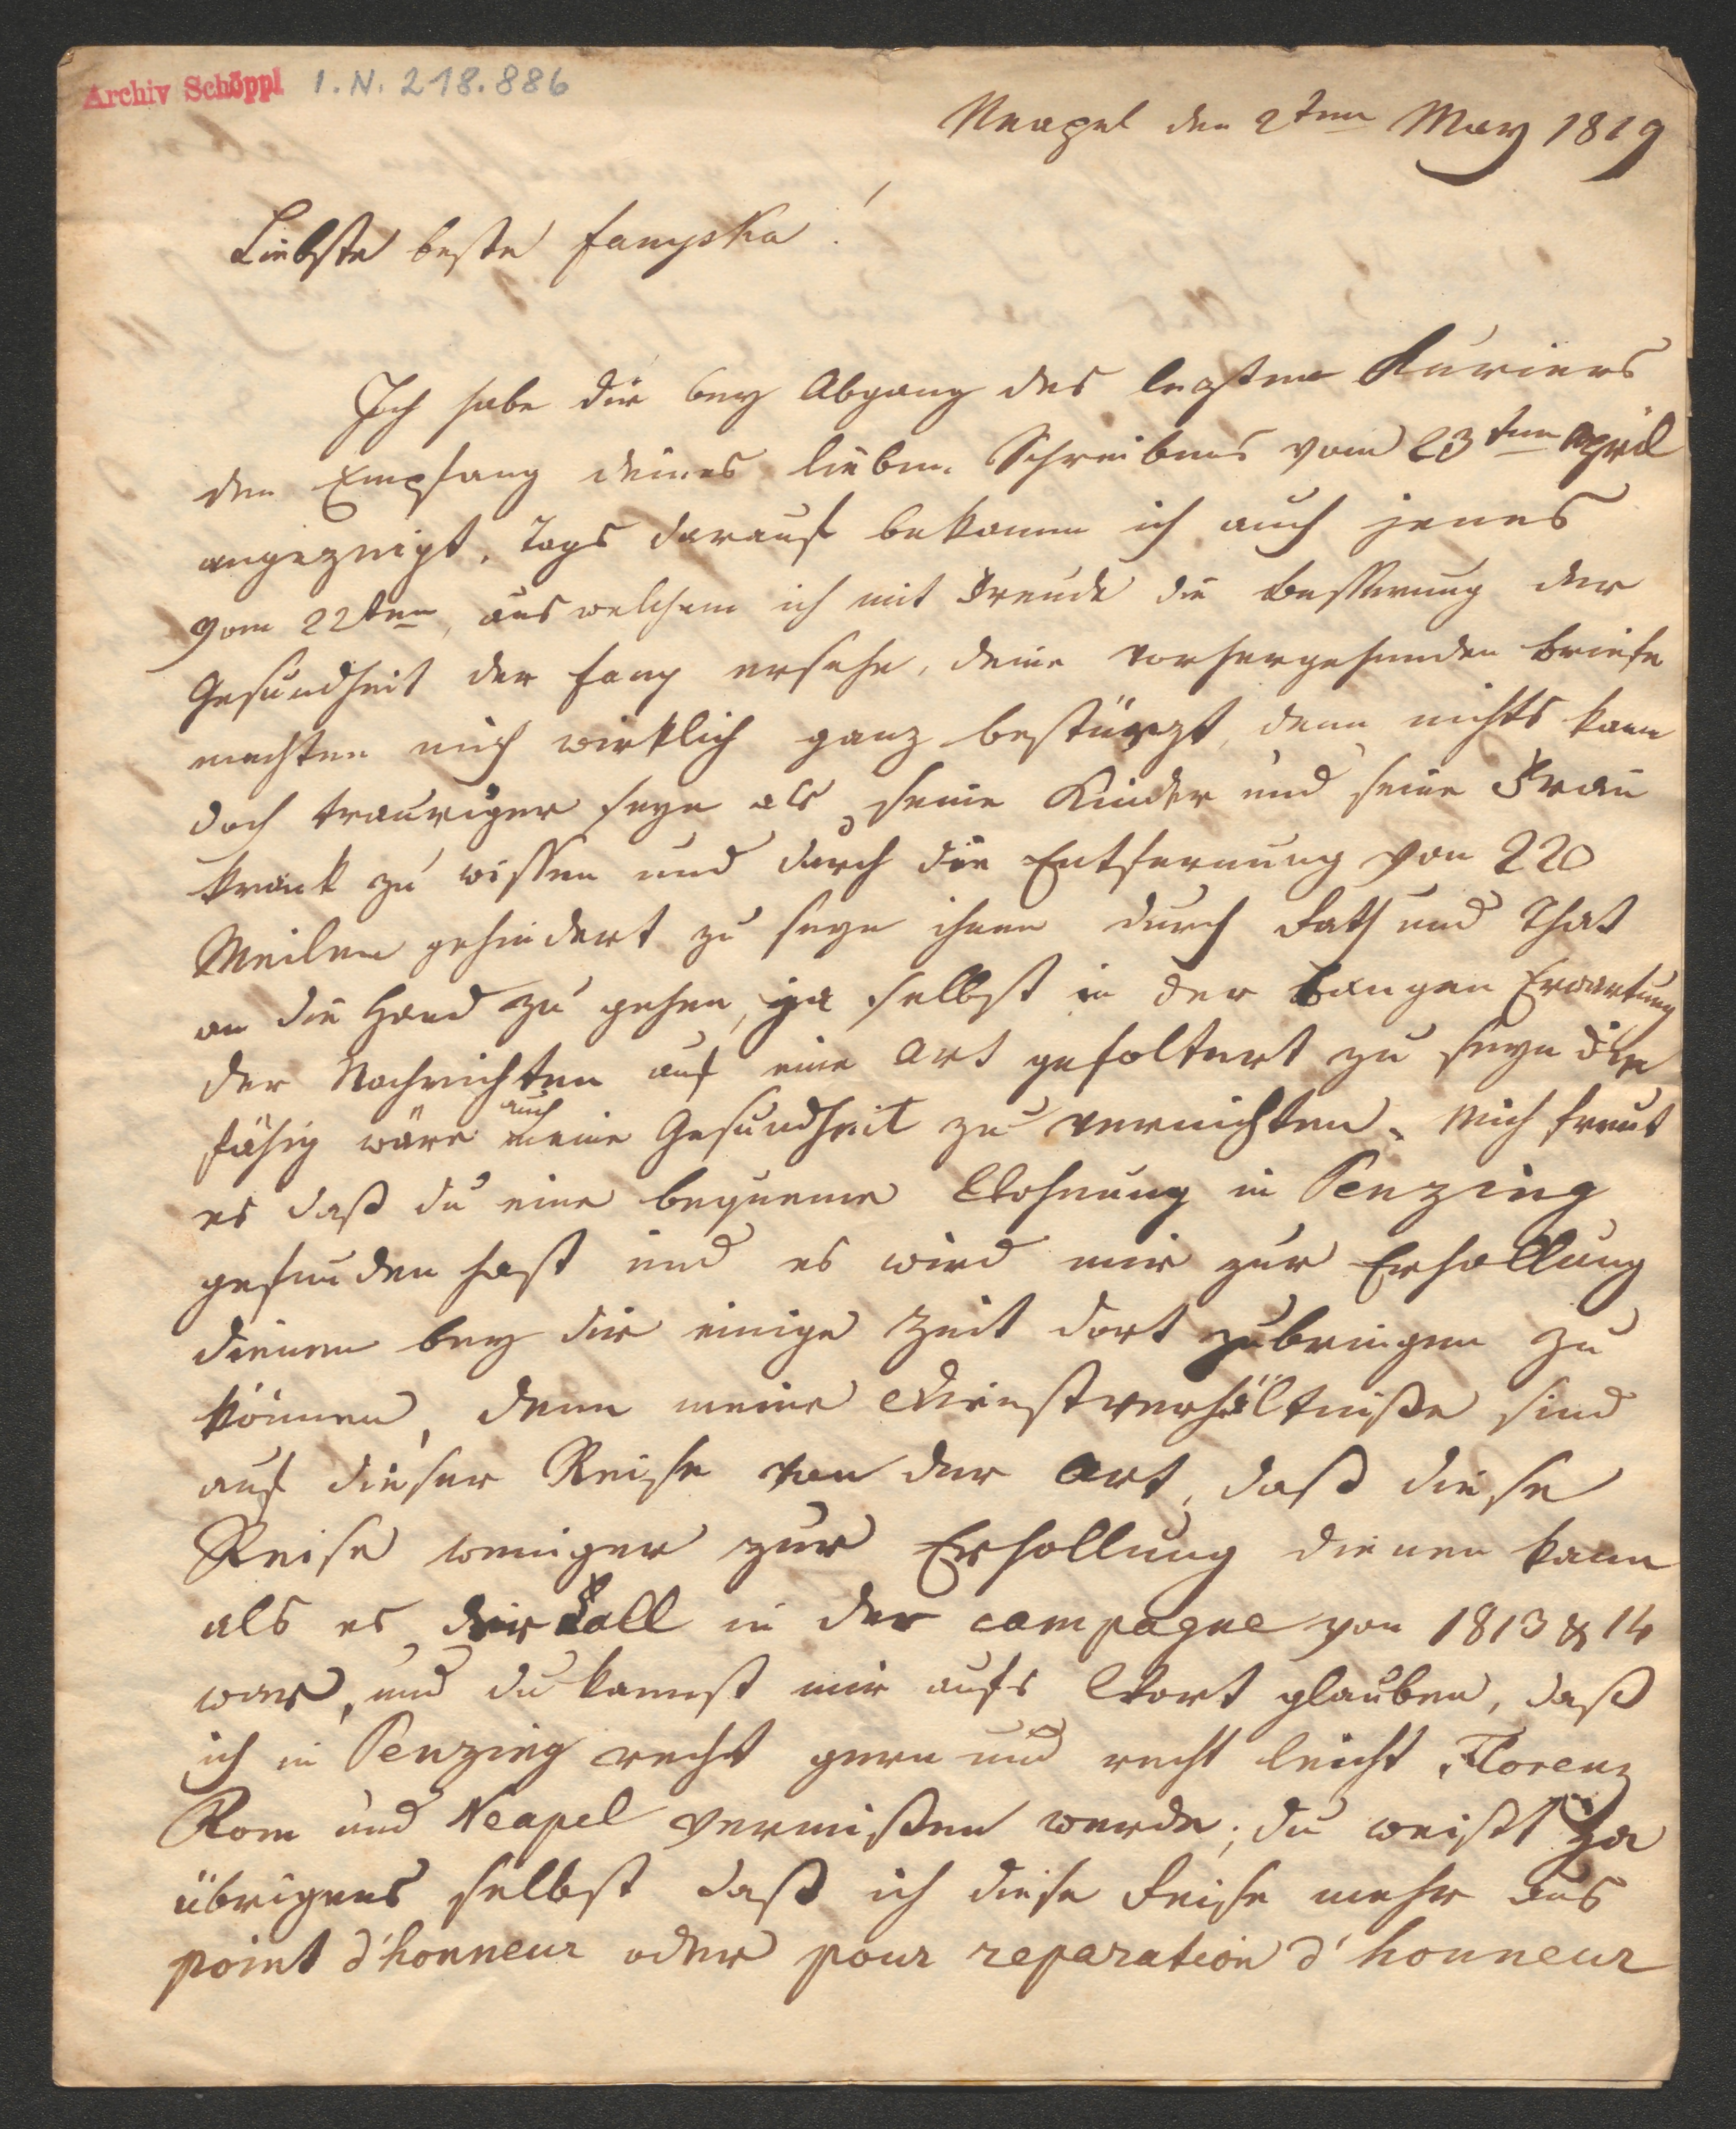 Archiv Schöppl I. N. 218.886
Neapel den 2ten May 1819
Liebste beste
Ich habe dir bey Abgang des lezten Kuriers
den Empfang deines lieben Schreibens vom 23ten April
angezeigt, Tags darauf bekomm ich auch jenes
vom 22ten, aus welchem ich mit Freude die Besserung der
Gesundheit der Fany ersehe, deine vorhergehenden Briefe
machten mich wirklich ganz bestürzt, denn nichts kann
doch trauriger seyn als seine Kinder und seine Frau
krank zu wissen und durch die Entfernung von 220
Meilen gehindert zu seyn ihnen durch Rath und That
an die Hand zu gehen, ja selbst in der bangen Erwartung
der Nachrichten auf eine Art gefoltert zu seyn die
fähig wäre auch meine Gesundheit zu vernichten. Mich freut
es daß du eine bequeme Wohnung in Penzing
gefunden hast und es wird mir zur Erhollung
dienen bey dir einige Zeit dort zubringen zu
können, denn meine Dienstverhältniße sind
auf dieser Reise von der Art, daß diese
Reise weniger zur Erhollung dienen kann
als es der Fall in der campagne von 1813 & 14
war, und du kannst mir aufs Wort glauben, daß
ich in Penzing recht gern und recht leicht Florenz
Rom und Neapel vermißen werde; du weißt ja
übrigens selbst daß ich diese Reise mehr aus
point d'honneur oder pour reparation d'honneur